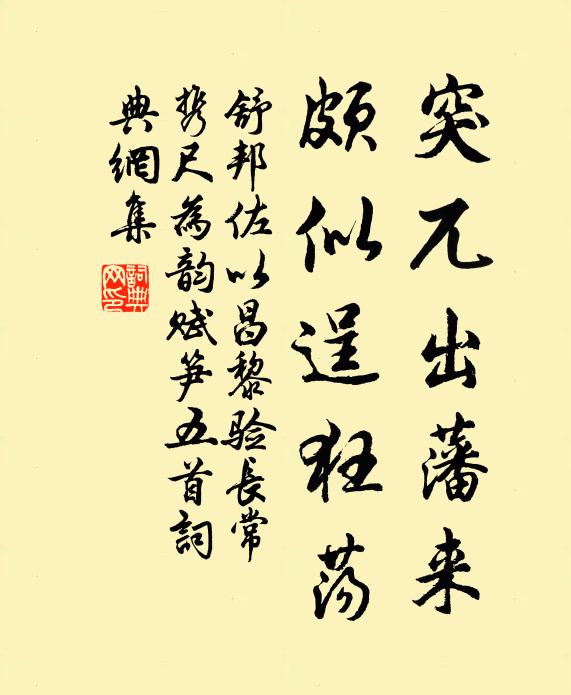 突兀出藩来
颇似逞狂荡
舒邦佐以昌黎验長常
携尺為韵赋笋五首詞
典網集
詞典
网印